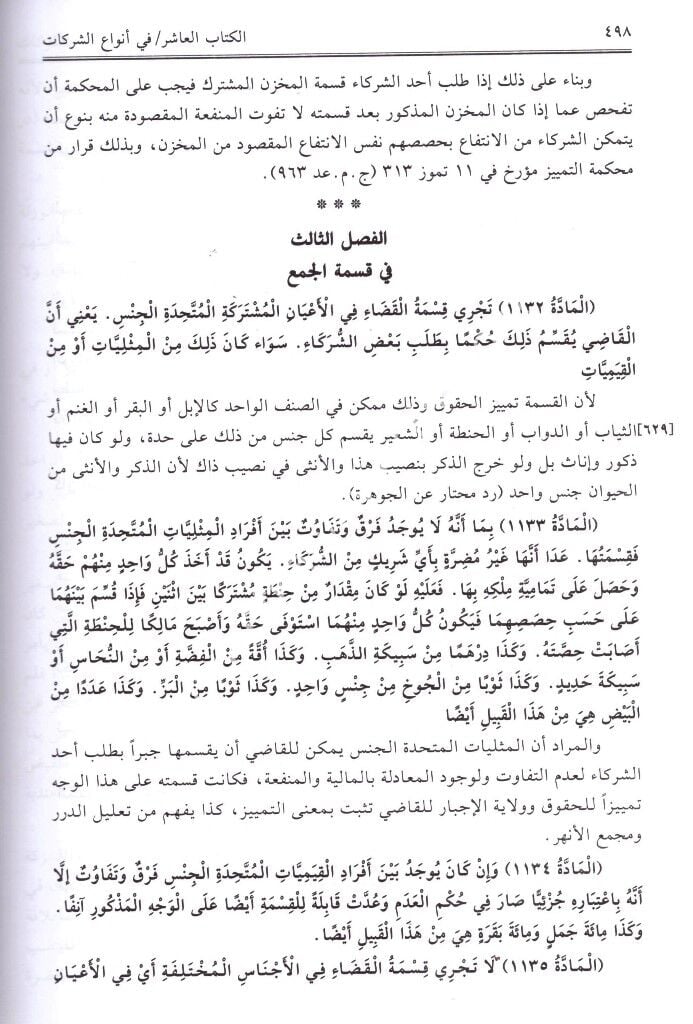 ٤٩٨ الكتاب العاشر/ في أنواع الشركات
وبناء على ذلك إذا طلب أحد الشركاء قسمة المخزن المشترك فيجب على المحكمة أن
تفحص عما إذا كان المخزن المذكور بعد قسمته لا تفوت المنفعة المقصودة منه بنوع أن
يتمكن الشركاء من الانتفاع بحصصهم نفس الانتفاع المقصود من المخزن، وبذلك قرار من
محكمة التمييز مؤرخ في ١١ تموز ٣١٣ (ج.م.عد ٩٦٣).
***
الفصل الثالث
في قسمة الجمع
(الْمَادَّةُ ١١٣٢) تَجْرِي قِسْمَةُ الْقَضَاءِ فِي الْأَعْيَانِ الْمُشْتَرَكَةِ الْمُتَّحِدَةِ الْجِنْسِ. يَعْنِي أَنَّ
الْقَاضِي يُقَسِّمُ ذَلِكَ حُكْمًا بِطَلَبِ بَعْضِ الشُّرَكَاءِ. سَوَاء كَانَ ذَلِكَ مِنْ الْمِثْلِيَّاتِ أَوْ مِنْ
الْقِيَمِيَّاتِ
لأن القسمة تمييز الحقوق وذلك ممكن في الصنف الواحد كالإبل أو البقر أو الغنم أو
[٦٢٩]الثياب أو الدواب أو الحنطة أو الشعير يقسم كل جنس من ذلك على حدة، ولو كان فيها
ذكور وإناث بل ولو خرج الذكر بنصيب هذا والأنثى في نصيب ذاك لأن الذكر والأنثى من
الحيوان جنس واحد (رد محتار عن الجوهرة).
(الْمَادَّةُ ١١٣٣) بِمَا أَنَّهُ لَا يُوجَدُ فَرْقٌ وَتَفَاوُتٌ بَيْنَ أَفْرَادِ الْمِثْلِيَّاتِ الْمُتَّحِدَةِ الْجِنْسِ
فَقِسْمَتُهَا. عَدَا أَنَّهَا غَيْرُ مُضِرَّةٍ بِأَيِّ شَرِيكٍ مِنْ الشُّرَكَاءِ. يَكُونُ قَدْ أَخَذَ كُلُّ وَاحِدٍ مِنْهُمْ حَقَّهُ
وَحَصَلَ عَلَى تَمَامِيَّةِ مِلْكِهِ بِهَا. فَعَلَيْهِ لَوْ كَانَ مِقْدَارٌ مِنْ حِنْطَةٍ مُشْتَرَكًا بَيْنَ اثْنَيْنِ فَإِذَا قُسِّمَ بَيْنَهُمَا
عَلَى حَسَبِ حِصَصِهِمَا فَيَكُونُ كُلُّ وَاحِدٍ مِنْهُمَا اسْتَوْفَى حَقَّهُ وَأَصْبَحَ مَالِكًا لِلْحِنْطَةِ الَّتِي
أَصَابَتْ حِصَّتَهُ. وَكَذَا دِرْهَمًا مِنْ سَبِيكَةِ الذَّهَبِ. وَكَذَا أُقَّةً مِنْ الْفِضَّةِ أَوْ مِنْ النُّحَاسِ أَوْ
سَبِيكَةَ حَدِيدٍ. وَكَذَا ثَوْبًا مِنْ الْجُوخِ مِنْ جِنْسٍ وَاحِدٍ. وَكَذَا ثَوْبًا مِنْ الْبَزِّ. وَكَذَا عَدَدًا مِنْ
الْبَيْضِ هِيَ مِنْ هَذَا الْقَبِيلِ أَيْضًا
والمراد أن المثليات المتحدة الجنس يمكن للقاضي أن يقسمها جبراً بطلب أحد
الشركاء لعدم التفاوت ولوجود المعادلة بالمالية والمنفعة، فكانت قسمته على هذا الوجه
تمييزاً للحقوق وولاية الإجبار للقاضي تثبت بمعنى التمييز، كذا يفهم من تعليل الدرر
ومجمع الأنهر.
(الْمَادَّةُ ١١٣٤) وَإِنْ كَانَ يُوجَدُ بَيْنَ أَفْرَادِ الْقِيَمِيَّاتِ الْمُتَّحِدَةِ الْجِنْسِ فَرْقٌ وَتَفَاوُتٌ إلَّا
أَنَّهُ بِاعْتِبَارِهِ جُزْئِيًّا صَارَ فِي حُكْمِ الْعَدَمِ وَعُدَّتْ قَابِلَةً لِلْقِسْمَةِ أَيْضًا عَلَى الْوَجْهِ الْمَذْكُورِ آنِفًا.
وَكَذَا مِائَةَ جَمَلٍ وَمِائَةَ بَقَرَةٍ هِيَ مِنْ هَذَا الْقَبِيلِ أَيْضًا.
(الْمَادَّةُ ١١٣٥) لَا تَجْرِي قِسْمَةُ الْقَضَاءِ فِي الْأَجْنَاسِ الْمُخْتَلِفَةِ أَيْ فِي الْأَعْيَانِ